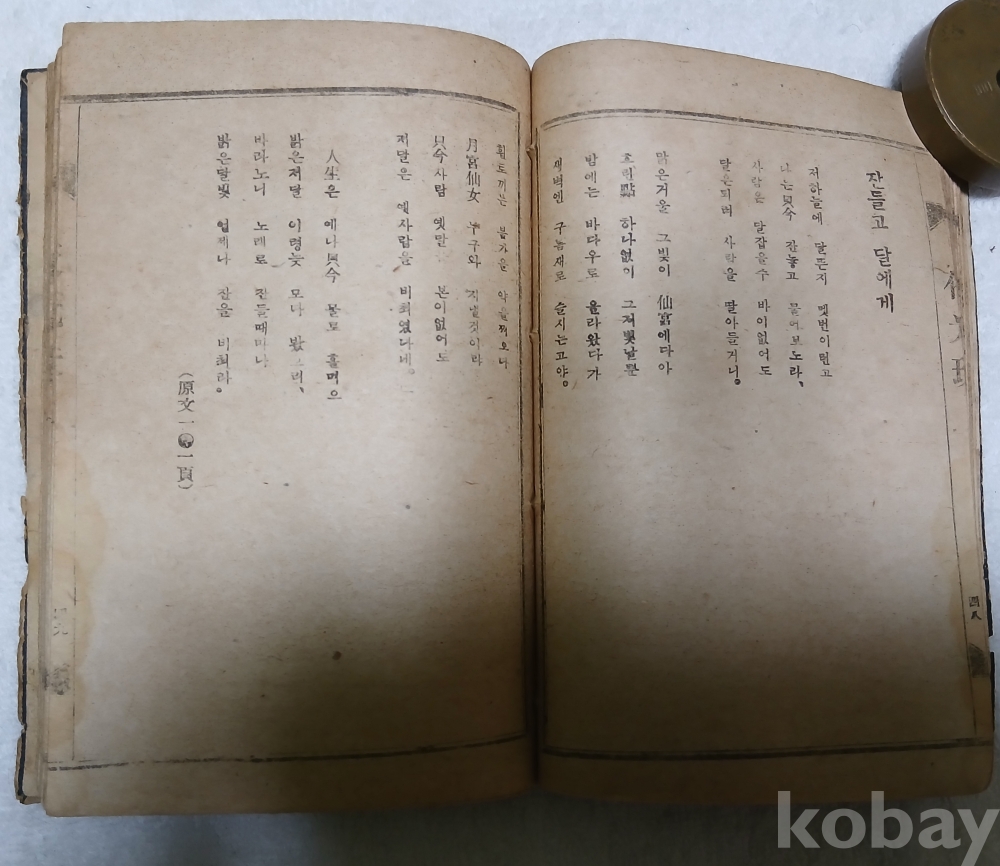 잔들고 달에게
저하늘에 달뜬지 몟번이런고
나는只今 잔놓고 물어보노라、
사람은 달잡을수 바이없어도
달은되려 사람을 딸아들거니。
맑은거울 그빛이 仙宮에다아
흐린點 하나없이 그저빛날뿐
밤에는 바다우로 올라왔다가
새벽엔 구름새로 숨시는고야。
四八
흰토끼는 봄가을 악을찌오니
月宮仙女 누구와 지낼것이라
只今사람 옛달 본이없어도
저달은 옛사람을 비최였나네。
人生은 예나只今 물로 흘며으
밝은저달 이렁늣 모다 봤으리、
바라노니 노래로 잔들때마다
밝은달빛 언제나 잔을 비최라。
(原文一 一頁)
kobay